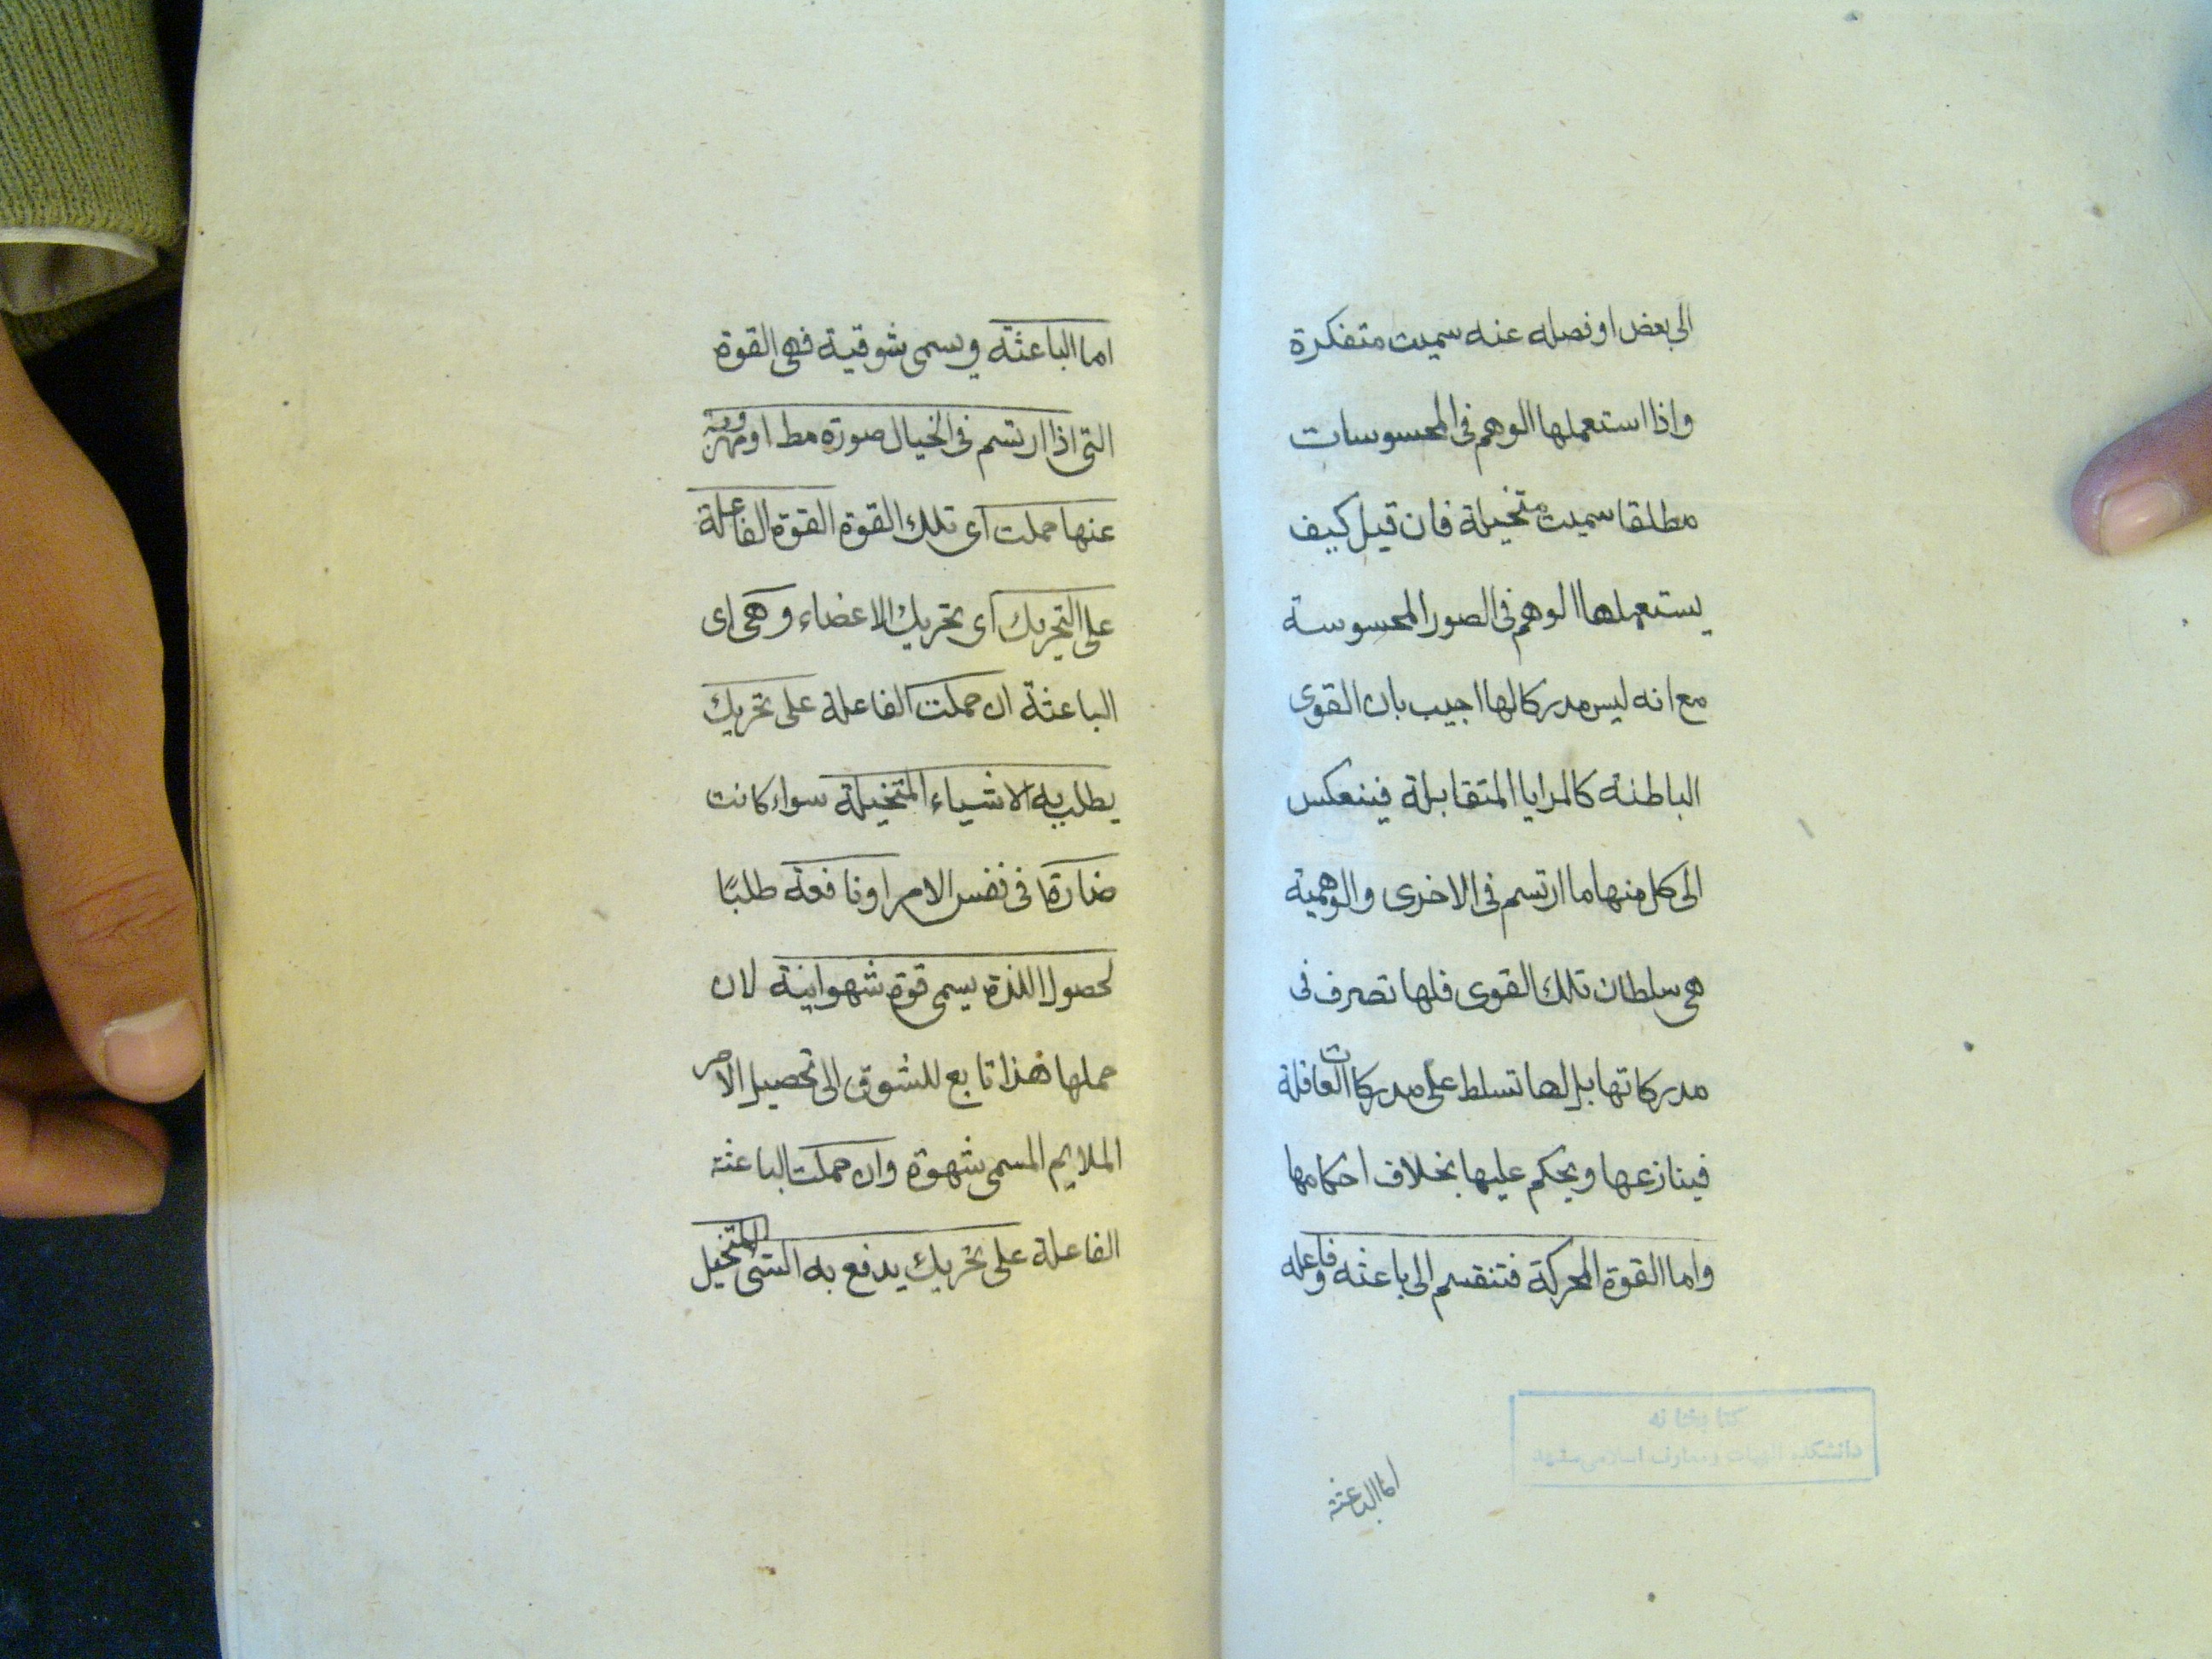 الى بعض او فصله عنه سميت متفكرة
واذا استعملها الوهم فى المحسوسات
مطلقا سميت متخيلة فان قيل كيف
يستعملها الوهم فى الصور المحسوسة
مع انه ليس مدركا لها اجيب بان القوى
الباطنة كالمرايا المتقابلة فينعكس
الى كل منها ما ارتسم فى الاخرى والوهمية
هى سلطان تلك القوى فلها تصرف فى
مدركاتها بل لها تسلط على مدركات العاقلة
فينازعها ويحكم عليها بخلاف احكامها
واما القوة المحركة فتنقسم الى باعثه وفاعله
اما الباعثة
كتابخانه
دانشكده الهيات و معارف اسلامى مشهد
اما الباعثة ويسمى شوقية فهى القوة
التى اذا ارتسم فى الخيال صورة مط او مهروبة
عنها حملت اى تلك القوة القوة الفاعلة
على التحريك اى تحريك الاعضاء وهى اى
الباعثة ان حملت الفاعلة على تحريك
يطلب به الاشياء المتخيلة سواء كانت
ضارة فى نفس الامر او نافعة طلبًا
لحصول اللذة يسمى قوة شهوانية لان
حملها هذا تابع للشوق الى تحصيل الامر
الملايم المسمى شهوة وان حملت الباعثة
الفاعلة على تحريك يدفع به الشئ المتخيل